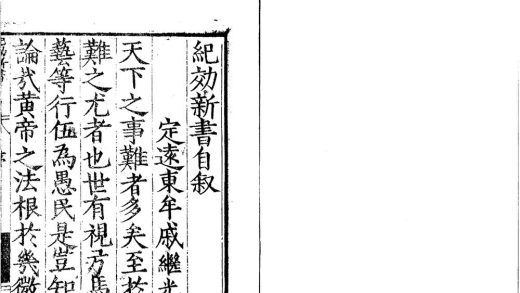 紀効新書自叙
定遠東牟戚繼光
天下之事難者多矣至於
難之尤者也世有視弓馬
藝等行伍為愚民是豈知
論㢤黄帝之法根於幾微